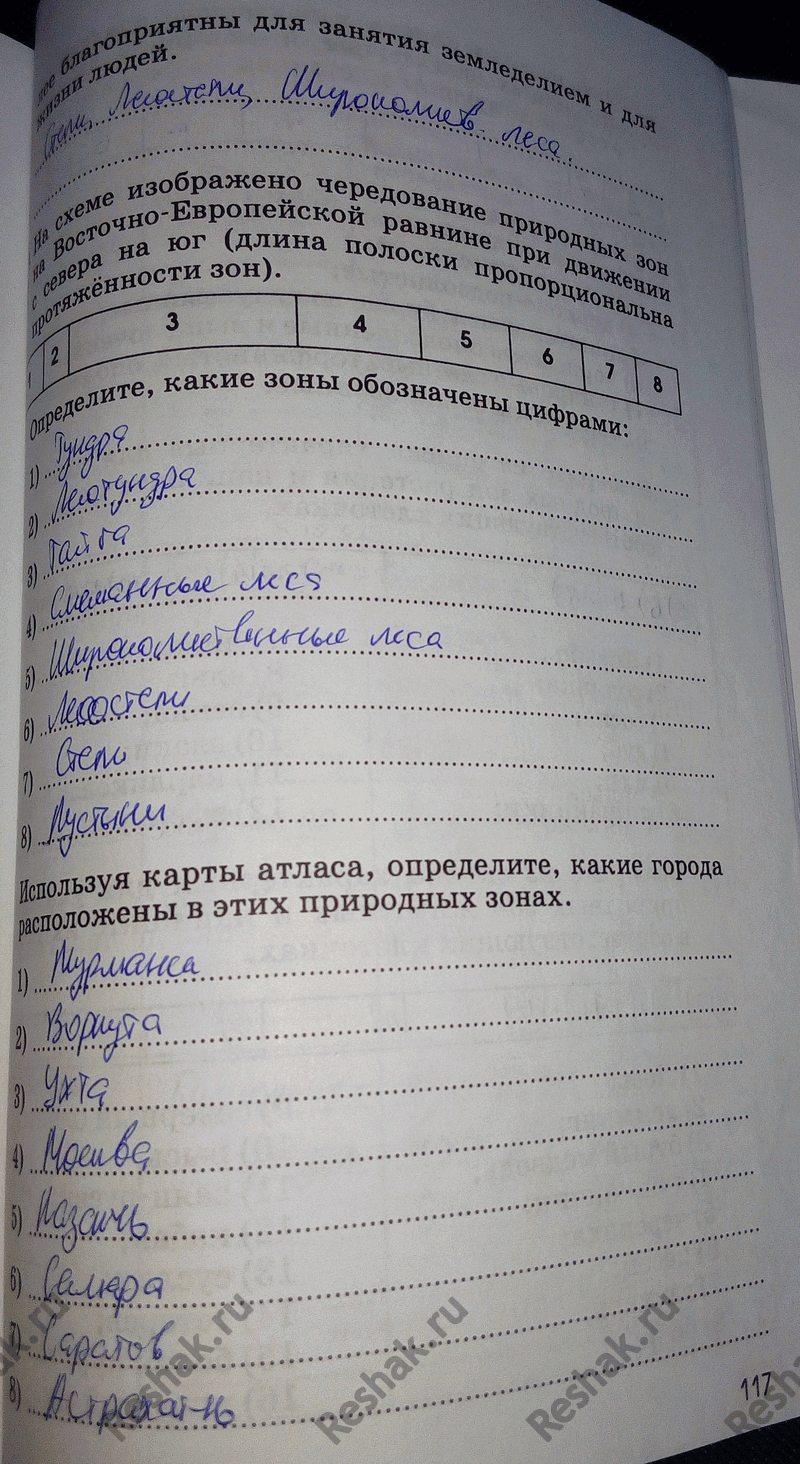 благоприятны для занятия земледелием и для
жизни людей.
Степи, Лесостепи, Широколиств. леса.
На схеме изображено чередование природных зон
на Восточно-Европейской равнине при движении
с севера на юг (длина полоски пропорциональна
протяжённости зон).
1 2 3 4 5 6 7 8
Определите, какие зоны обозначены цифрами:
1) Тундра
2) Лесотундра
3) Тайга
4) Смешанные леса
5) Широколиственные леса
6) Лесостепи
7) Степи
8) Пустыни
Используя карты атласа, определите, какие города
расположены в этих природных зонах.
1) Мурманск
2) Воркута
3) Ухта
4) Москва
5) Казань
6) Самара
7) Саратов
8) Астрахань
117
Reshak.ru
Reshak.ru
Reshak.ru